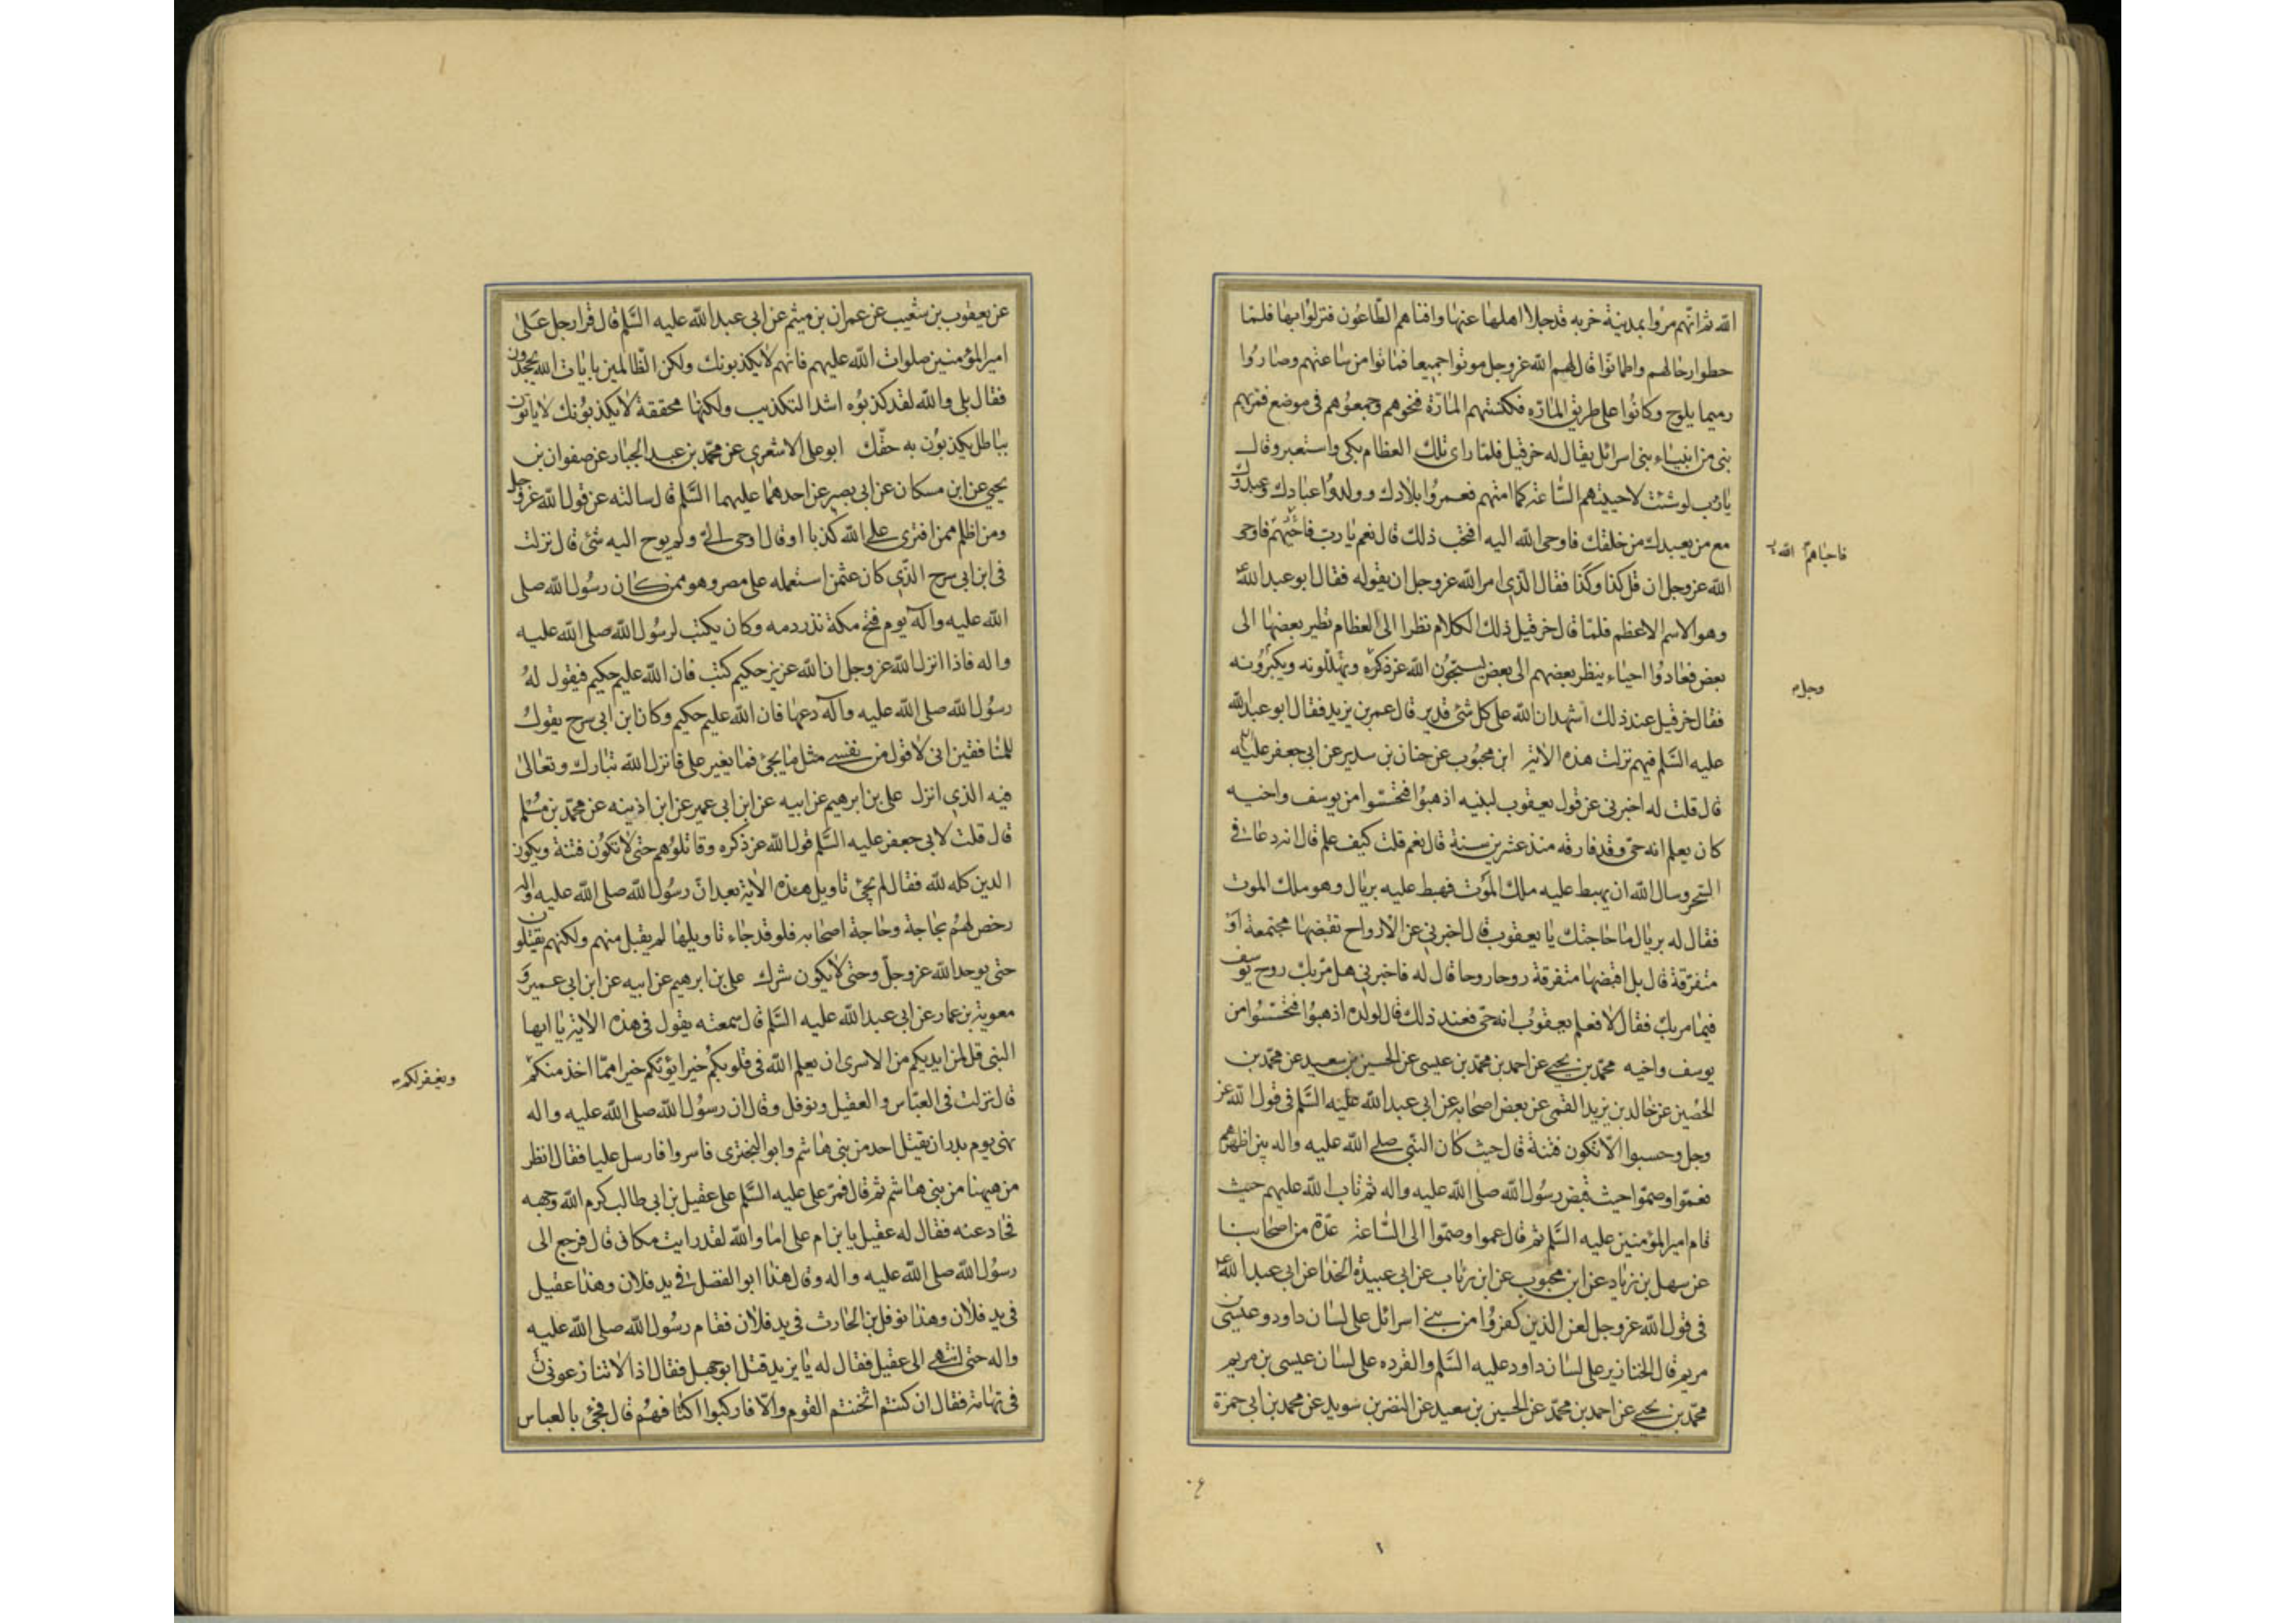 الله ثم انهم مروا بمدينة خربه قد جلا اهلها عنها وافناهم الطاعون فنزلوا بها فلما
حطوا رحالهم واطمانوا قال لهم الله عز وجل موتوا جميعا فماتوا من ساعتهم وصاروا
رميما يلوح وكانوا على طريق المارة فكنستهم المارة فنحوهم وجمعوهم في موضع فمر بهم
نبي من انبياء بني اسرائل يقال له خرقيل فلما راى تلك العظام بكى واستعبر وقال
يا رب لو شئت لاحييتهم الساعة كما امتهم فعمروا بلادك وولدوا عبادك وعبدوك
مع من يعبدك من خلقك فاوحى الله اليه افتحب ذلك قال نعم يا رب فاحيهم فاوحى
فاحياهم الله
الله عز وجل ان قل كذا وكذا فقال الذي امر الله عز وجل ان يقوله فقال ابو عبد الله ع
وهو الاسم الاعظم فلما قال خرقيل ذلك الكلام نظرا الى العظام تطير بعضها الى
بعض فعادوا احياء ينظر بعضهم الى بعض يسبحون الله عز ذكره ويهللونه ويكبرونه
وجل
فقال خرقيل عند ذلك اشهد ان الله على كل شئ قدير قال عمر بن يزيد فقال ابو عبد الله
عليه السلم فيهم نزلت هذه الاية ابن محبوب عن حنان بن سدير عن ابي جعفر عليه
قال قلت له اخبرني عن قول يعقوب لبنيه اذهبوا فتحسسوا من يوسف واخيه
كان يعلم انه حي وقد فارقه منذ عشرين سنة قال نعم قلت كيف علم قال انه دعا في
السحر وسال الله ان يهبط عليه ملك الموت فهبط عليه بريال وهو ملك الموت
فقال له بريال ما حاجتك يا يعقوب قال اخبرني عن الارواح تقبضها مجتمعة او
متفرقة قال بل اقبضها متفرقة روحا روحا قال له فاخبرني هل مر بك روح يوسف
فيما مر بك فقال لا فعلم يعقوب انه حي فعند ذلك قال لولده اذهبوا فتحسسوا من
يوسف واخيه محمد بن يحيى عن احمد بن محمد بن عيسى عن الحسين بن سعيد عن محمد بن
الحصين عن خالد بن يزيد القمى عن بعض اصحابه عن ابي عبد الله عليه السلم في قول الله عز
وجل وحسبوا الا تكون فتنة قال حيث كان النبي صلى الله عليه واله بين اظهرهم
فعموا وصموا حيث قبض رسول الله صلى الله عليه واله ثم تاب الله عليهم حيث
قام امير المؤمنين عليه السلم ثم قال عموا وصموا الى الساعة عدة من اصحابنا
عن سهل بن زياد عن ابن محبوب عن ابن رئاب عن ابي عبيدة الحذا عن ابي عبد الله ع
في قول الله عز وجل لعن الذين كفروا من بني اسرائل على لسان داود وعيسى بن
مريم قال الخنازير على لسان داود عليه السلم والقرده على لسان عيسى بن مريم
محمد بن يحيى عن احمد بن محمد عن الحسين بن سعيد عن النضر بن سويد عن محمد بن ابي حمزة
عن يعقوب بن شعيب عن عمران بن ميثم عن ابي عبد الله عليه السلم قال قرا رجل على
امير المؤمنين صلوات الله عليهم فانهم لا يكذبونك ولكن الظالمين بايات الله يجحدون
فقال بلى والله لقد كذبوه اشد التكذيب ولكنها محققة لا يكذبونك لا ياتون
بباطل يكذبون به حقك ابو على الاشعري عن محمد بن عبد الجبار عن صفوان بن
يحيى عن ابن مسكان عن ابي بصير عن احدهما عليهما السلم قال سالته عن قول الله عز وجل
ومن اظلم ممن افترى على الله كذبا او قال اوحى الي ولم يوح اليه شئ قال نزلت
في ابن ابي سرح الذي كان عثمن استعمله على مصر وهو ممن كان رسول الله صلى
الله عليه واله يوم فتح مكة نذر دمه وكان يكتب لرسول الله صلى الله عليه
واله فاذا انزل الله عز وجل ان الله عزيز حكيم كتب فان الله عليم حكيم فيقول له
رسول الله صلى الله عليه واله دعها فان الله عليم حكيم وكان ابن ابي سرح يقول
للمنافقين اني لاقول من نفسي مثل ما يجئ فما يغير على فانزل الله تبارك وتعالى
فيه الذي انزل على بن ابرهيم عن ابيه عن ابن ابي عمير عن ابن اذينه عن محمد بن مسلم
قال قلت لابي جعفر عليه السلم قول الله عز ذكره وقاتلوهم حتى لا تكون فتنة ويكون
الدين كله لله فقال لم يجئ تاويل هذه الاية بعد ان رسول الله صلى الله عليه واله
رخص لهم بحاجة وحاجة اصحابه فلو قد جاء تاويلها لم يقبل منهم ولكنهم يقتلون
حتى يوحد الله عز وجل وحتى لا يكون شرك على بن ابرهيم عن ابيه عن ابن ابي عمير و
معوية بن عمار عن ابي عبد الله عليه السلم قال سمعته يقول في هذه الاية يا ايها
النبي قل لمن ايديكم من الاسرى ان يعلم الله في قلوبكم خيرا يؤتكم خيرا مما اخذ منكم
ويغفر لكم
قال نزلت في العباس والعقيل ونوفل وقال ان رسول الله صلى الله عليه واله
نهى يوم بدر ان يقتل احد من بني هاشم وابو البختري فاسروا فارسل عليا فقال انظر
من ههنا من بني هاشم ثم قال فمر على عليه السلم على عقيل بن ابي طالب كرم الله وجهه
فحاد عنه فقال له عقيل يا بن ام على اما والله لقد رايت مكاني قال فرجع الى
رسول الله صلى الله عليه واله وقال هذا ابو الفضل في يد فلان وهذا عقيل
في يد فلان وهذا نوفل بن الحارث في يد فلان فقام رسول الله صلى الله عليه
واله حتى انتهى الى عقيل فقال له يا يزيد قتل ابو جهل فقال اذا لا تنازعوني
في تهامة فقال ان كنتم اثخنتم القوم والا فاركبوا اكتافهم قال فجئ بالعباس